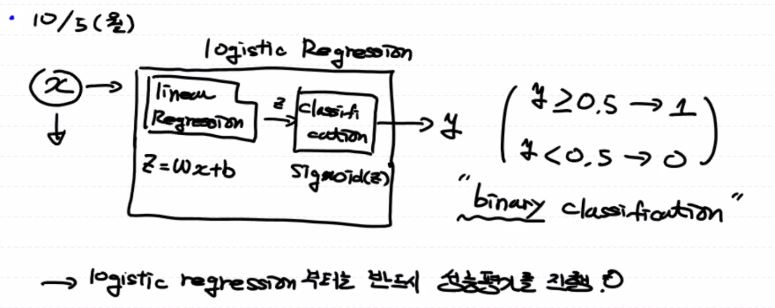 • 10/5(월)
logistic Regression
x →
linear
Regression
z → classifi
cation → y
Z=Wx+b
Sigmoid(z)
y ≥ 0.5 → 1
y < 0.5 → 0
"binary classification"
→ logistic regression 부터는 반드시 성능평가를 진행!